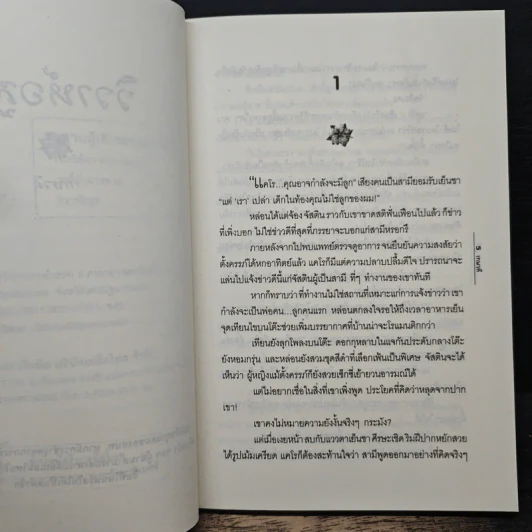 ๑
"แคโร...คุณอาจกำลังจะมีลูก" เสียงคนเป็นสามียอมรับเย็นชา
"แต่ 'เรา' เปล่า เด็กในท้องคุณไม่ใช่ลูกของผม!"
หล่อนได้แต่จ้อง จัสติน ราวกับเขาขาดสติฟั่นเฟือนไปแล้ว ก็ข่าว
ที่เพิ่งบอก ไม่ใช่ข่าวดีที่สุดที่ภรรยาจะบอกแก่สามีหรอกรึ
ภายหลังจากไปพบแพทย์ตรวจดูอาการ จนยืนยันความสงสัยว่า
ตั้งครรภ์ได้หกอาทิตย์แล้ว แคโรก็มีแต่ความปลาบปลื้มดีใจ ปรารถนาจะ
แล่นไปแจ้งข่าวดีนี้แก่จัสตินผู้เป็นสามี ที่ๆ ทำงานของเขาทันที
หากก็ทราบว่า ที่ทำงานไม่ใช่สถานที่เหมาะแก่การแจ้งข่าวว่า เขา
กำลังจะเป็นพ่อคน...ลูกคนแรก หล่อนตกลงใจรอให้ถึงเวลาอาหารเย็น
จุดเทียนไขบนโต๊ะช่วยเพิ่มบรรยากาศที่บ้านน่าจะโรแมนติกกว่า
เทียนยังลุกโพลงบนโต๊ะ ดอกกุหลาบในแจกันประดับกลางโต๊ะ
ยังหอมกรุ่น และหล่อนยังสวมชุดสีดำที่เลือกเฟ้นเป็นพิเศษ จัสตินจะได้
เห็นว่า ผู้หญิงแม้ตั้งครรภ์ก็ยังสวยเซ็กซี่เย้ายวนอารมณ์ได้
แต่ไม่อยากเชื่อในสิ่งที่เขาเพิ่งพูด ประโยคที่คิดว่าหลุดจากปาก
เขา!
เขาคงไม่หมายความยังงั้นจริงๆ กระมัง?
แต่เมื่อเงยหน้า สบกับแววตาเย็นชา ศีรษะเชิด ริมฝีปากหยักสวย
ได้รูปเม้มเครียด แคโรก็ต้องสะท้านใจว่า สามีพูดออกมาอย่างที่คิดจริงๆ